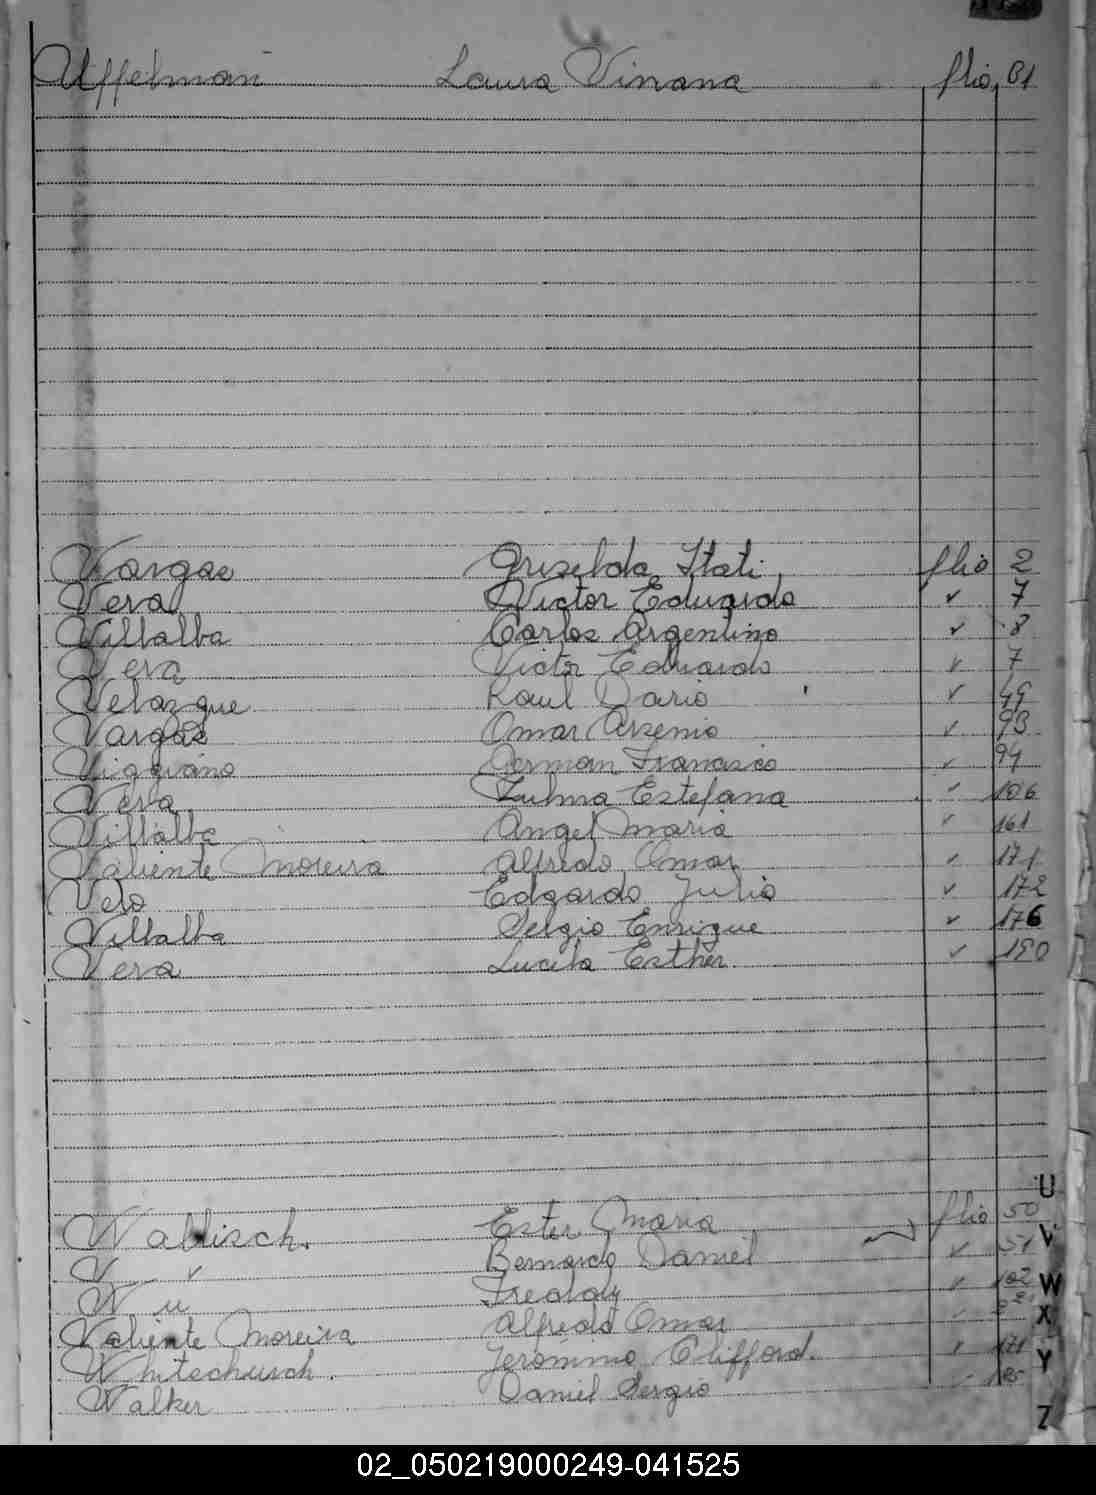 Uffelman Laura Viviana flio 81
Vargas Griselda Itati flio 2
Vera Victor Eduardo ✓ 7
Villalba Carlos Argentino ✓ 8
Vera Victor Eduardo ✓ 7
Velazque Raul Dario ✓ 49
Vargas Omar Arsenio ✓ 93
Viggiano German Francisco ✓ 94
Vera Zulma Estefana ✓ 106
Villalba Angel Maria ✓ 161
Valiente Moreira Alfredo Omar ✓ 171
Velo Edgardo Julio ✓ 172
Villalba Sergio Enrique ✓ 176
Vera Lucila Esther ✓ 190
Wallisch. Ester Maria flio 50
Bernardo Daniel ✓ 51
Wu Freddy ✓ 102
Valiente Moreira Alfredo Omar ✓
Whitechurch. Jeronimo Clifford. ✓ 171
Walker Daniel Sergio
U
V
W
X
Y
Z
02_050219000249-041525